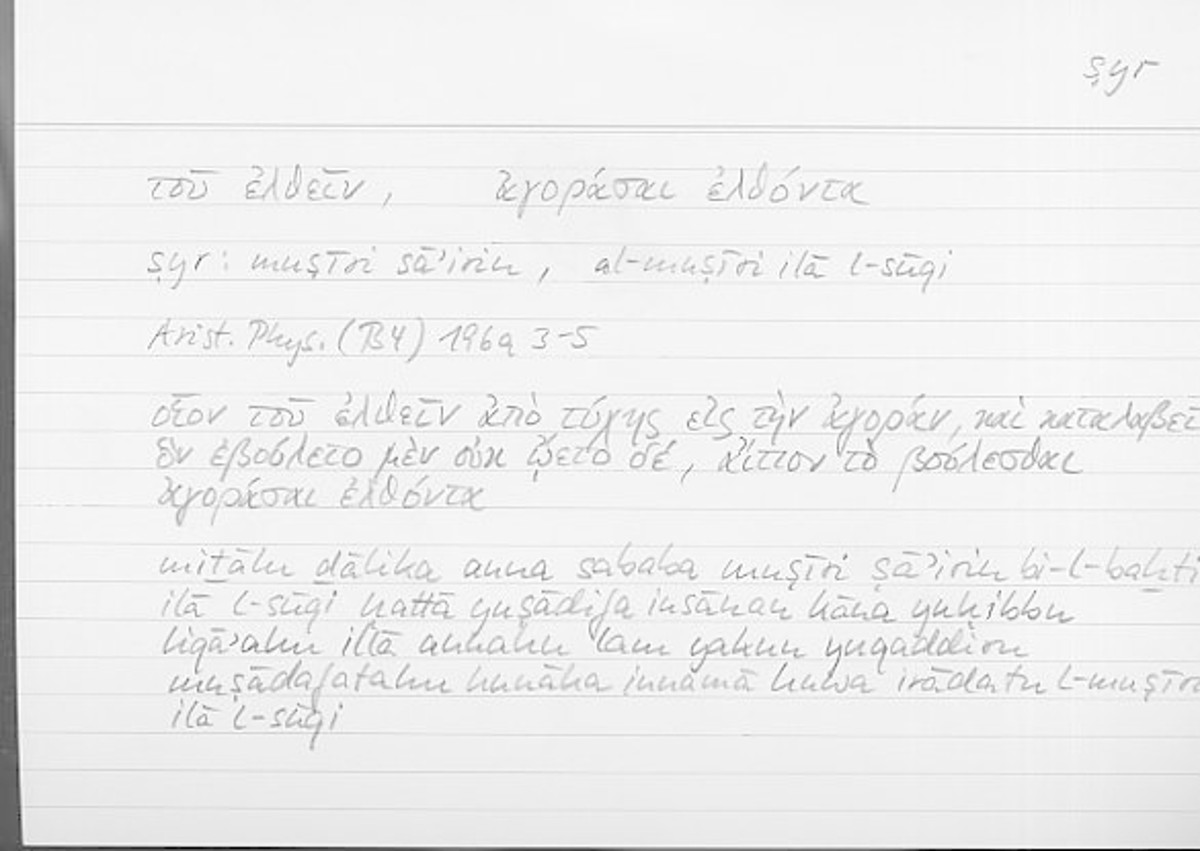 ṣyr
τοῦ ἐλθεῖν, ἀγοράσαι ἐλθόντα
ṣyr: muṣīri sā'irin, al-muṣīri ilā l-sūqi
Arist. Phys. (B4) 196a 3-5
οἷον τοῦ ἐλθεῖν ἀπὸ τύχης εἰς τὴν ἀγοράν, καὶ καταλαβεῖ
ὃν ἐβούλετο μὲν οὐκ ᾤετο δέ, αἴτιον τὸ βούλεσθαι
ἀγοράσαι ἐλθόντα
miṯālu ḏālika anna sababa muṣīri ṣā'irin bi-l-baḫti
ilā l-sūqi ḥattā yuṣādifa insānan kāna yuḥibbu
liqā'ahu illā annahu lam yakun yuqaddiru
muṣādafatahu hunāka innamā huwa irādatu l-muṣīri
ilā l-sūqi